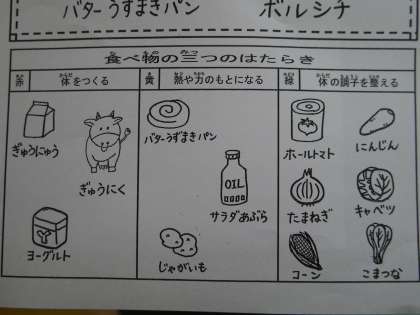 バターうずまきパン ボルシチ
食べ物の三つのはたらき
赤 体をつくる
黄 熱や力のもとになる
緑 体の調子を整える
ぎゅうにゅう
ぎゅうにく
ヨーグルト
バターうずまきパン
OIL
サラダあぶら
じゃがいも
ホールトマト
にんじん
たまねぎ
キャベツ
コーン
こまつな